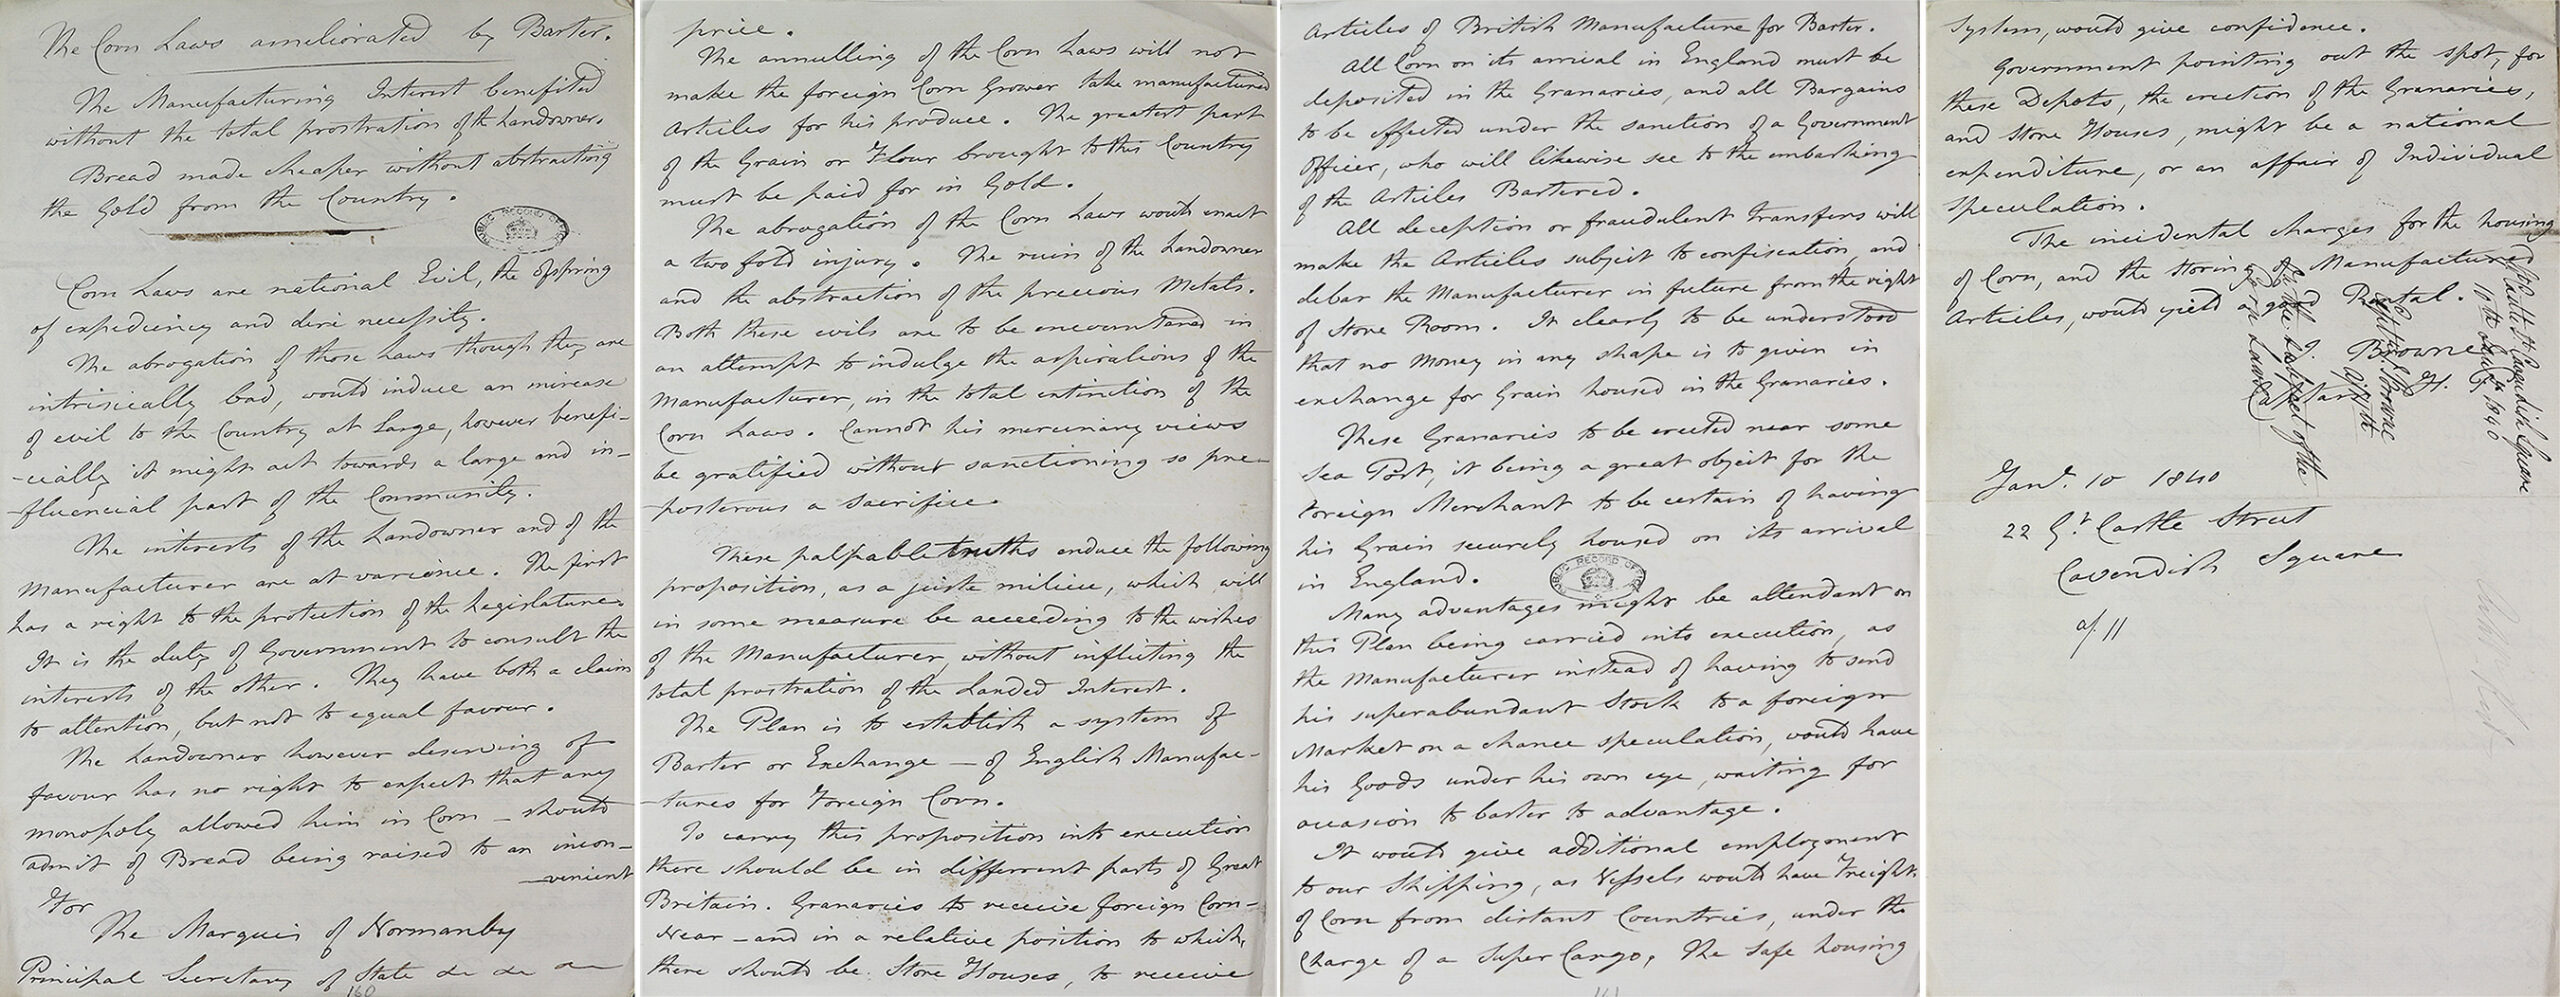 The Corn Laws ameliorated by Barter.
The Manufacturing Interest benefited
without the total prostration of the Landowners.
Bread made cheaper without abstracting
the Gold from the Country.
PUBLIC RECORD OFFICE
Corn Laws are national Evil, the offspring
of expediency and dire necessity.
The abrogation of those Laws though they are
intrinsically bad, would induce an increase
of evil to the Country at Large, however benefi-
-cially it might act towards a large and in-
-fluencial part of the Community.
The interests of the Landowner and of the
Manufacturer are at varience. The first
has a right to the protection of the Legislature.
It is the duty of Government to consult the
interests of the other. They have both a claim
to attention, but not to equal favour.
The Landowner however deserving of
favour has no right to expect that any
monopoly allowed him in Corn – should
admit of Bread being raised to an incon-
-venient
For
The Marquis of Normanby
Principal Secretary of State &c &c &c
160
price.
The annulling of the Corn Laws will not
make the foreign Corn Grower take manufactured
Articles for his produce. The greatest part
of the Grain or Flour brought to this Country
must be paid for in Gold.
The abrogation of the Corn Laws would enact
a two fold injury. The ruin of the Landowner
and the abstraction of the precious Metals.
Both these evils are to be encountered in
an attempt to indulge the aspirations of the
Manufacturer, in the total extinction of the
Corn Laws. Cannot his mercinary views
be gratified without sanctioning so pre-
-posterous a sacrifice.
These palpable truths enduce the following
proposition, as a juste milieu, which will
in some measure be acceeding to the wishes
of the Manufacturer, without inflicting the
total prostration of the Landed Interest.
The Plan is to establish a system of
Barter or Exchange – of English Manufac-
-tures for Foreign Corn.
To carry this proposition into execution
there should be in different parts of Great
Britain. Granaries to receive foreign Corn –
Near – and in a relative position to which,
there should be Store Houses, to receive
Articles of British Manufacture for Barter.
All Corn on its arrival in England must be
deposited in the Granaries, and all Bargains
to be effected under the sanction of a Government
Officer, who will likewise see to the embarking
of the Articles Bartered.
All deception or fraudulent transfers will
make the Articles subject to confiscation, and
debar the Manufacturer in future from the right
of Store Room. It clearly to be understood
that no Money in any shape is to given in
exchange for Grain housed in the Granaries.
These Granaries to be erected near some
Sea Port, it being a great object for the
Foreign Merchant to be certain of having
his Grain securely housed on its arrival
in England.
PUBLIC RECORD OFFICE
Many advantages might be attendant on
this Plan being carried into execution, as
the Manufacturer instead of having to send
his superabundant Stock to a foreign
Market on a chance speculation, would have
his Goods under his own eye, waiting for
occasion to barter to advantage.
It would give additional employment
to our Shipping, as Vessels would have Freight
of Corn from distant Countries, under the
Charge of a Super Cargo, The safe housing
161
System, would give confidence.
Government pointing out the spot, for
these Depots, the erection of the Granaries,
and Store Houses, might be a national
expenditure, or an affair of Individual
Speculation.
The incidental charges for the housing
of Corn, and the storing of Manufactured
Articles, would yield a good Rental.
J. Browne
Captain H.P.
Cavendish Square
10th Jany 1840
Captn J. Browne
On the Subject of the
Corn Laws
Jany. 10 1840
22 Gt. Castle Street
Cavendish Square